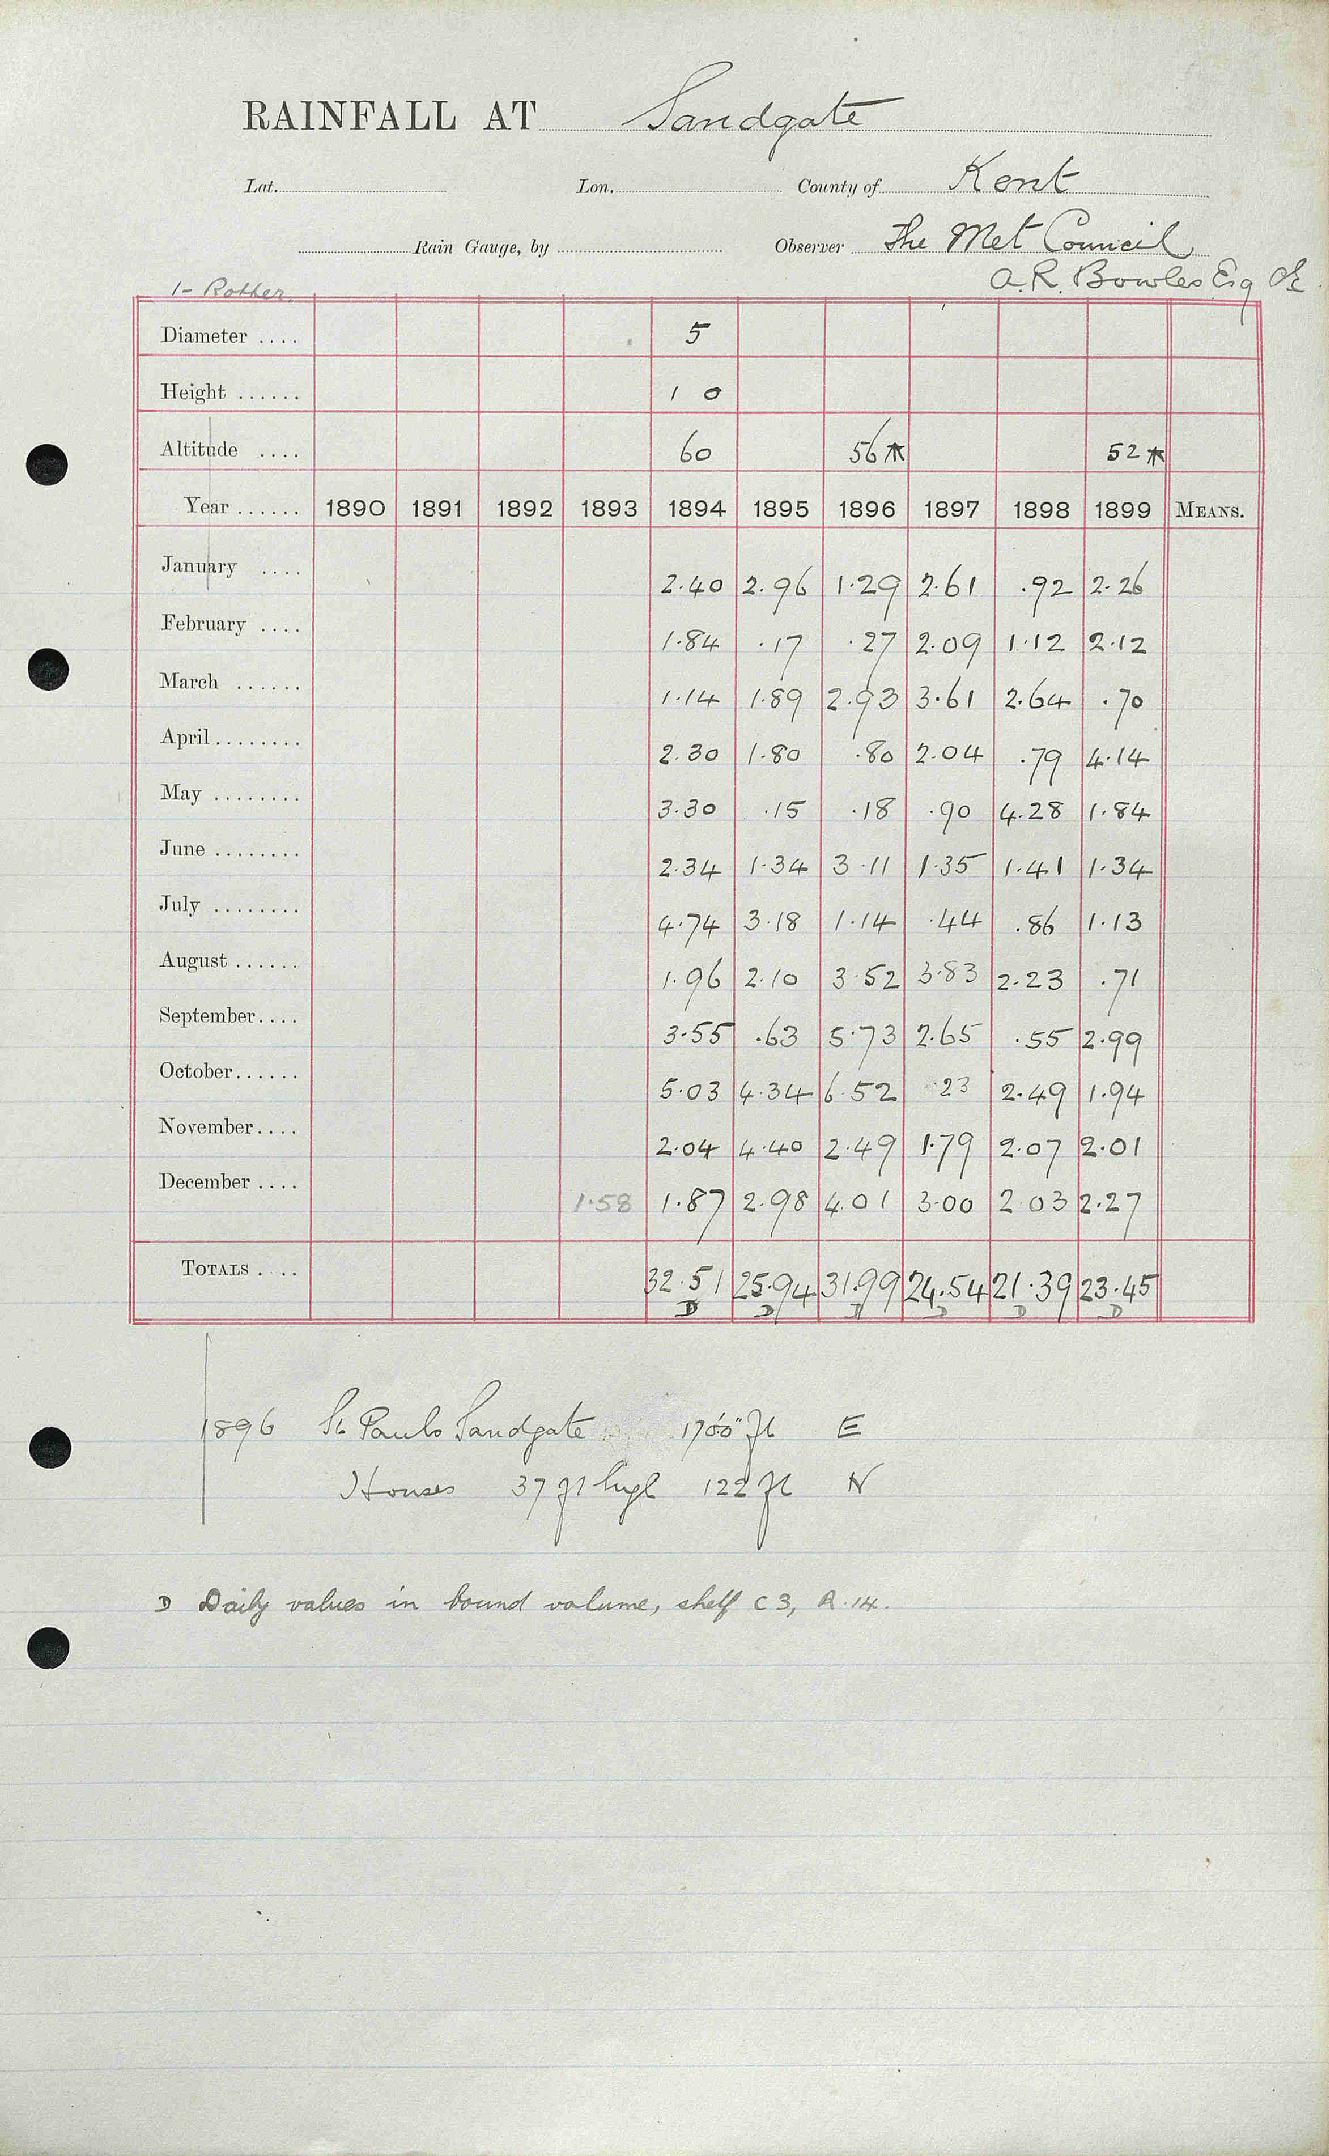 RAINFALL AT Sandgate
Lat. Lon. County of Kent
Rain Gauge, by Observer The Met Council
A. R. Bowles Esq
1- Rother
Diameter .... 5
Height ...... 1 0
Altitude .... 60 56* 52*
Year ...... 1890 1891 1892 1893 1894 1895 1896 1897 1898 1899 MEANS.
January .... 2.40 2.96 1.29 2.61 .92 2.26
February .... 1.84 .17 .27 2.09 1.12 2.12
March ...... 1.14 1.89 2.93 3.61 2.64 .70
April........ 2.30 1.80 .80 2.04 .79 4.14
May ........ 3.30 .15 .18 .90 4.28 1.84
June ........ 2.34 1.34 3.11 1.35 1.41 1.34
July ........ 4.74 3.18 1.14 .44 .86 1.13
August ...... 1.96 2.10 3.52 3.83 2.23 .71
September.... 3.55 .63 5.73 2.65 .55 2.99
October...... 5.03 4.34 6.52 .23 2.49 1.94
November.... 2.04 4.40 2.49 1.79 2.07 2.01
December .... 1.58 1.87 2.98 4.01 3.00 2.03 2.27
TOTALS .... 32.51 25.94 31.99 24.54 21.39 23.45
D D D D D D
1896 St Pauls Sandgate ft E
Houses 37 ft high 122 ft N
D Daily values in bound volume, shelf C 3, R.14.